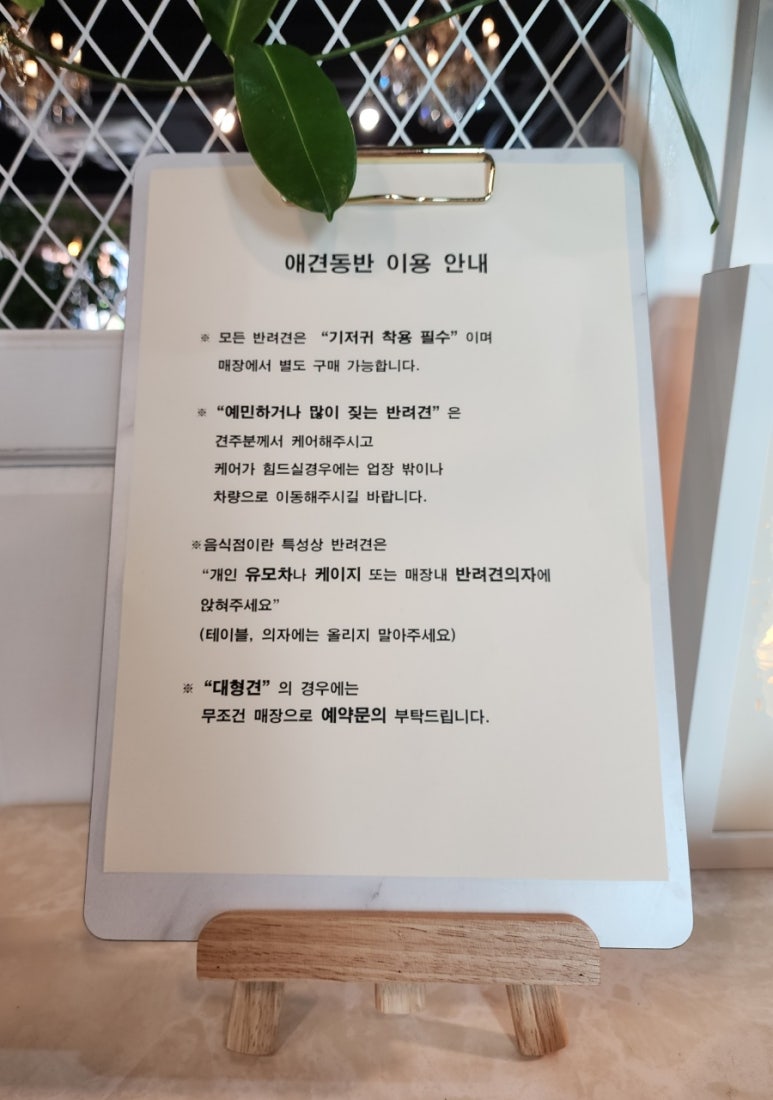 애견동반 이용 안내
※ 모든 반려견은 “기저귀 착용 필수” 이며
매장에서 별도 구매 가능합니다.
※ “예민하거나 많이 짖는 반려견” 은
견주분께서 케어해주시고
케어가 힘드실경우에는 업장 밖이나
차량으로 이동해주시길 바랍니다.
※음식점이란 특성상 반려견은
“개인 유모차나 케이지 또는 매장내 반려견의자에
앉혀주세요”
(테이블, 의자에는 올리지 말아주세요)
※ “대형견” 의 경우에는
무조건 매장으로 예약문의 부탁드립니다.